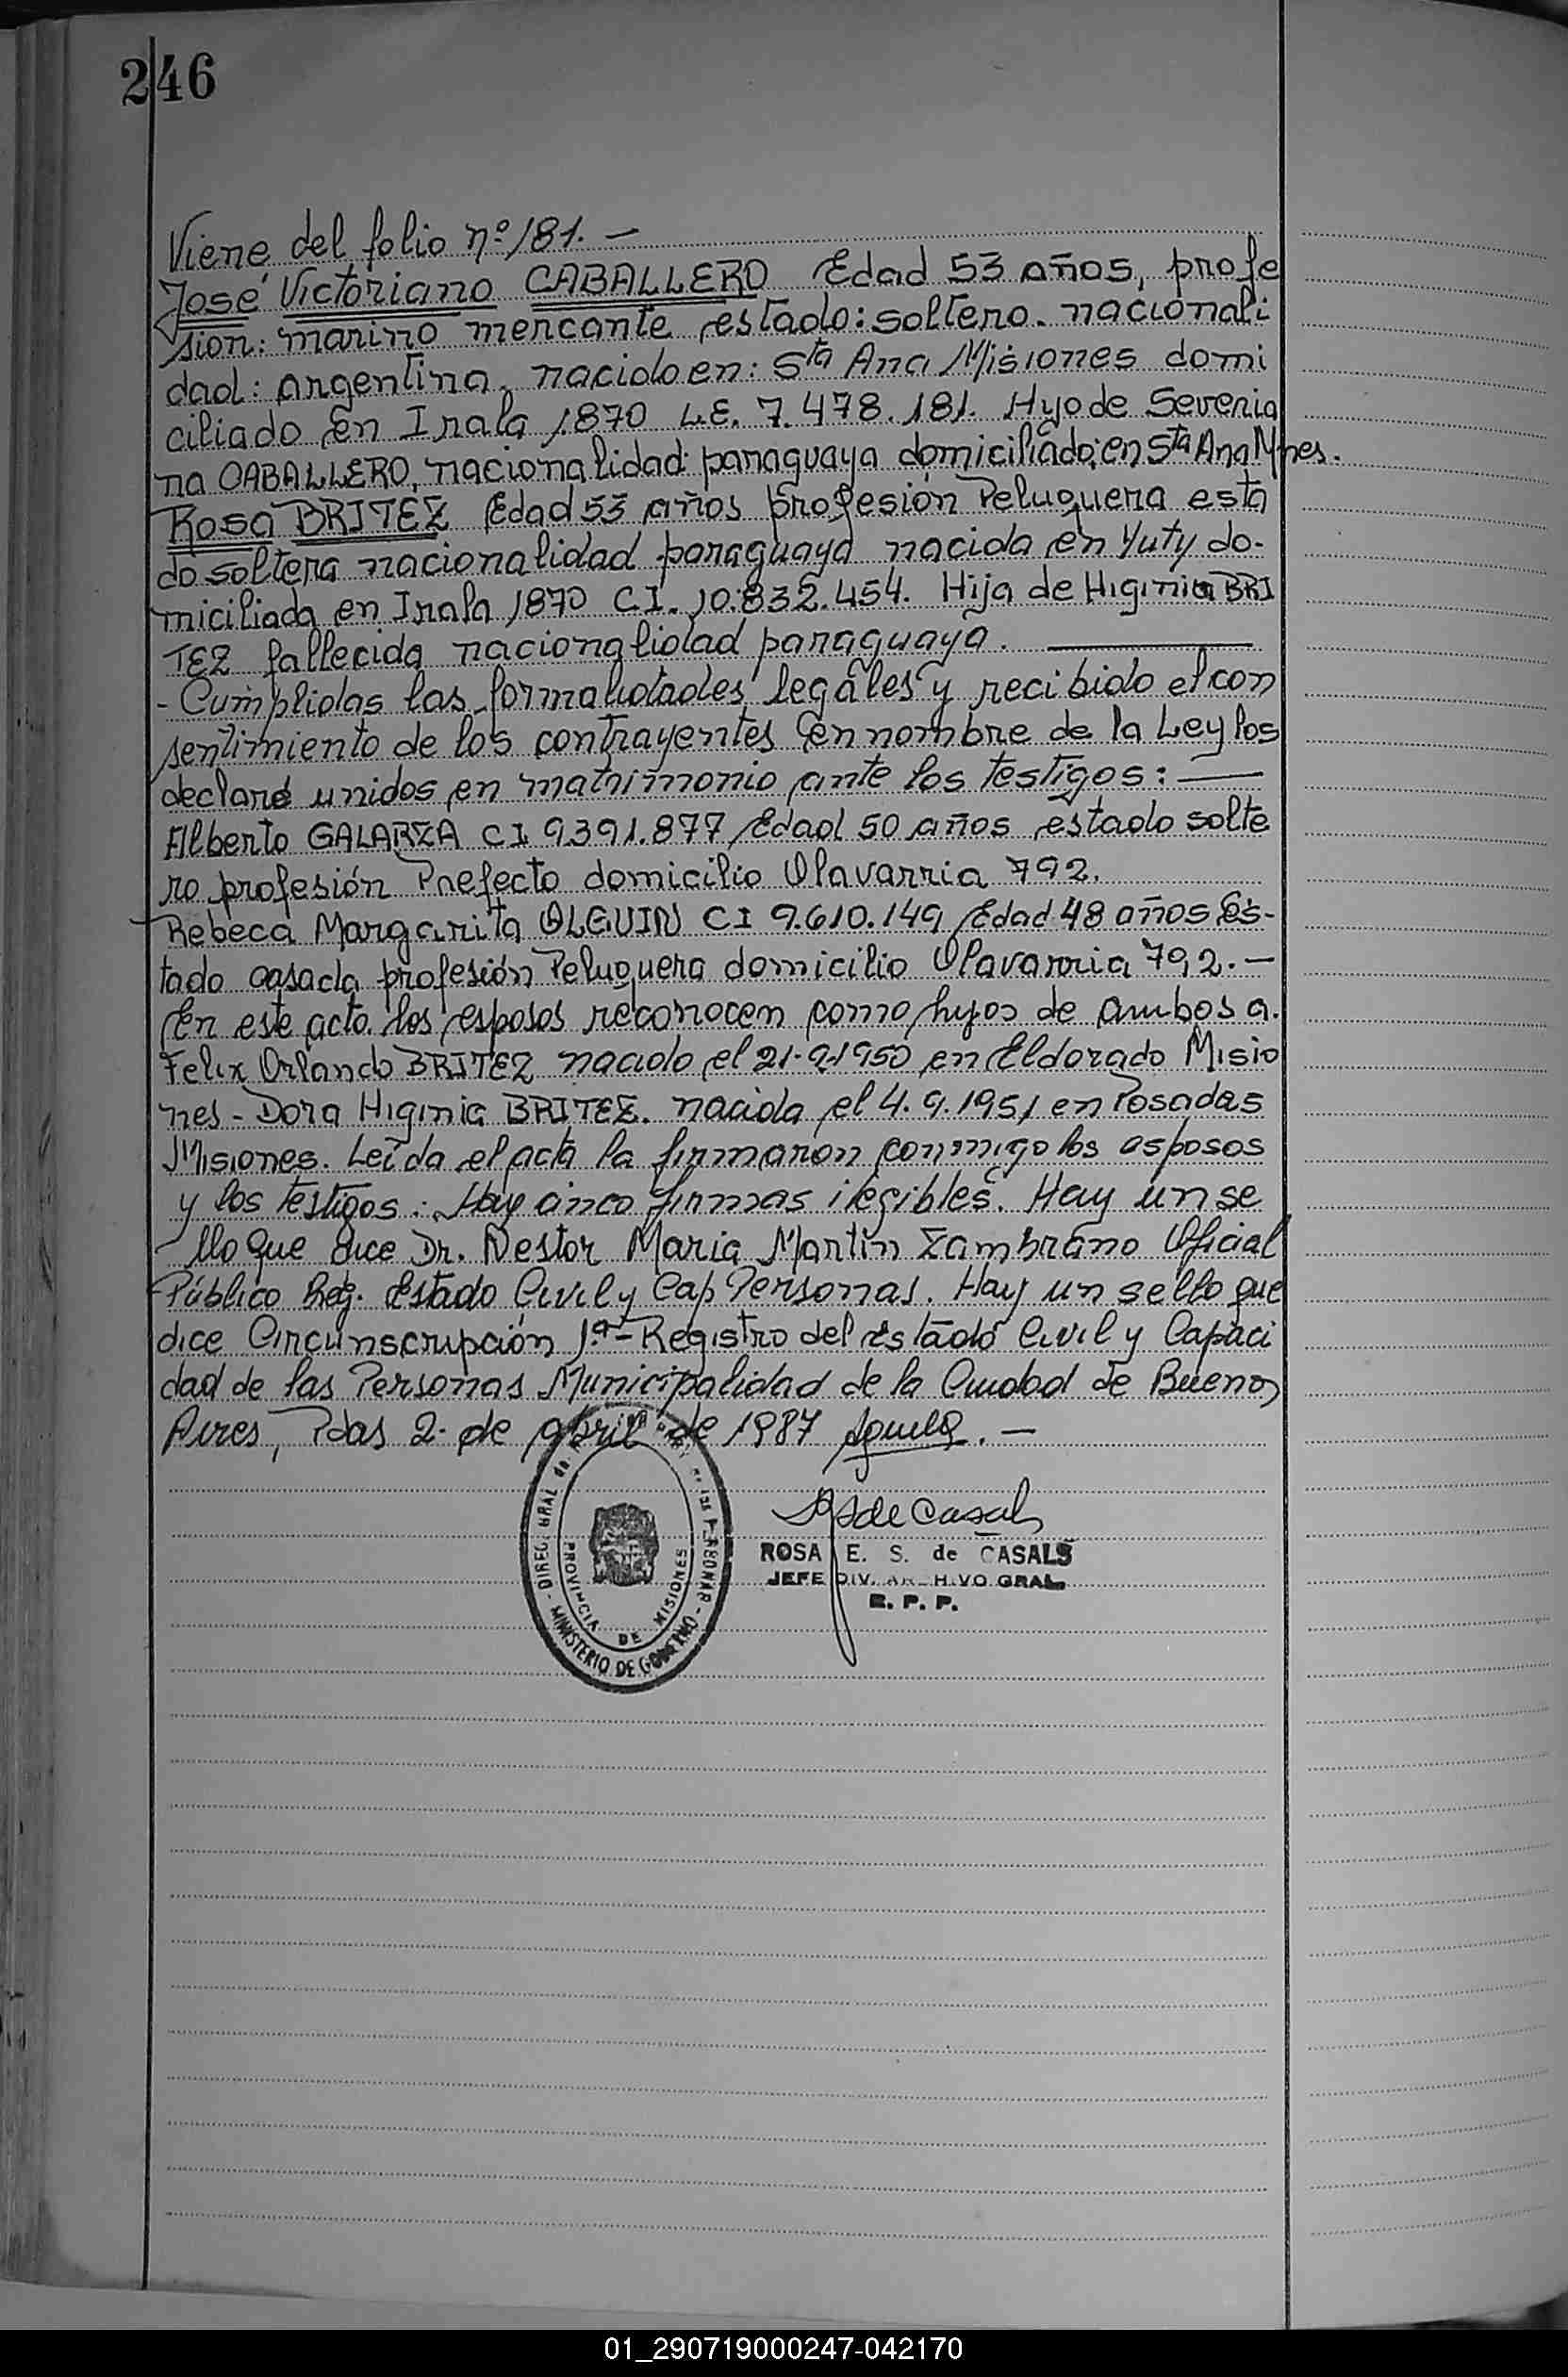 246
Viene del folio nº 181. —
José Victoriano CABALLERO Edad 53 años, profe
sion: marino mercante, estado: soltero. nacionali
dad: argentina, nacido en: Sta Ana Misiones domi
ciliado en Irala 1870 L.E. 7.478.181. Hijo de Severia
na CABALLERO, nacionalidad: paraguaya domiciliado: en Sta Ana Mnes.
Rosa BRITEZ Edad 53 años profesión Peluquera esta
do soltera nacionalidad paraguaya nacida en Yuty do-
miciliada en Irala 1870 C.I. 10.832.454. Hija de Higinia BRI
TEZ fallecida nacionalidad paraguaya. ———
- Cumplidas las formalidades legales y recibido el con
sentimiento de los contrayentes en nombre de la Ley los
declaré unidos en matrimonio ante los testigos: —
Alberto GALARZA CI 9.391.877 Edad 50 años estado solte
ro profesión Prefecto domicilio Olavarria 792.
Rebeca Margarita OLGUIN CI 9.610.149 Edad 48 años Es-
tado casada profesión Peluquera domicilio Olavarria 792. —
En este acto los esposos reconocen como hijos de ambos a.
Felix Orlando BRITEZ nacido el 21-9-1950 en Eldorado Misio
nes - Dora Higinia BRITEZ. nacida el 4.9.1951 en Posadas
Misiones. Leída el acta la firmaron conmigo los esposos
y los testigos: Hay cinco firmas ilegibles. Hay un se
llo que dice Dr. Nestor Maria Martin Zambrano Oficial
Público Reg. Estado Civil y Cap Personas. Hay un sello que
dice Circunscripción 1.ª - Registro del Estado Civil y Capaci
dad de las Personas Municipalidad de la Ciudad de Buenos
Aires, Pdas 2 de abril de 1987
de Casals
ROSA E. S. de CASALS
JEFE DIV. ARCHIVO GRAL.
R. P. P.
DIREC. GRAL de
MINISTERIO DE GOBIERNO
PROVINCIA DE MISIONES
01_290719000247-042170